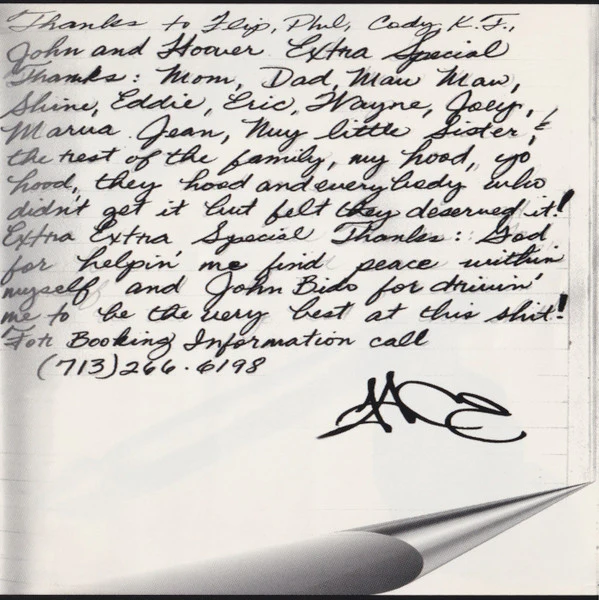 Thanks to Flip, Phil, Cody, K.T.,
John and Hoover Extra Special
Thanks: Mom, Dad, Maw Maw,
Shine, Eddie, Eric, Wayne, Joey,
Marva Jean, Muy little Sister, &
the rest of the family, my hood, yo
hood, they hood and everybody who
didn't get it but felt they deserved it!
Extra Extra Special Thanks: God
for helpin' me find peace within
myself and John Bido for drivin'
me to be the very best at this shit!
For Booking Information call
(713)266·6198